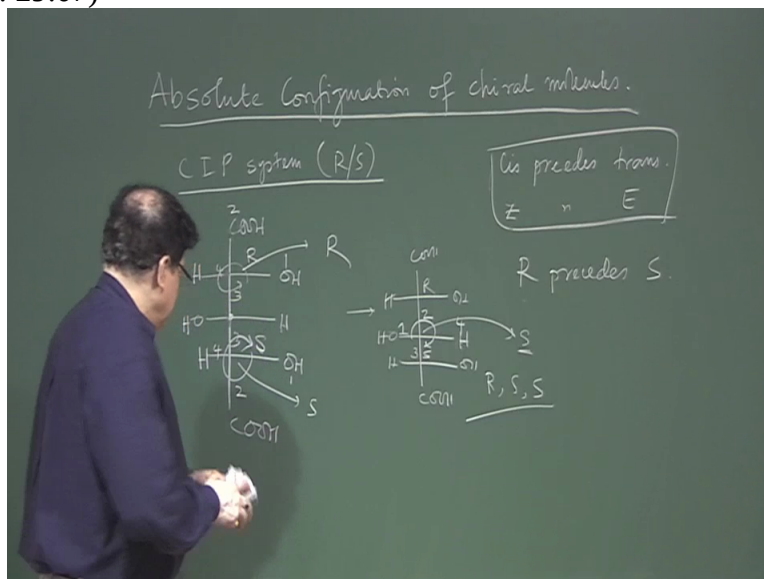 : 25:07)
Absolute Configuration of chiral molecules.
CIP system (R/S)
Cis precedes trans.
Z " E
R precedes S.
2
COOH
4 R
H OH
1
3
R
HO H
1 3 S
H 4 OH
1
2
S
COOH
→
COOH
R
H OH
2
HO 1 4 H
S
3 S
H OH
COOH
R, S, S